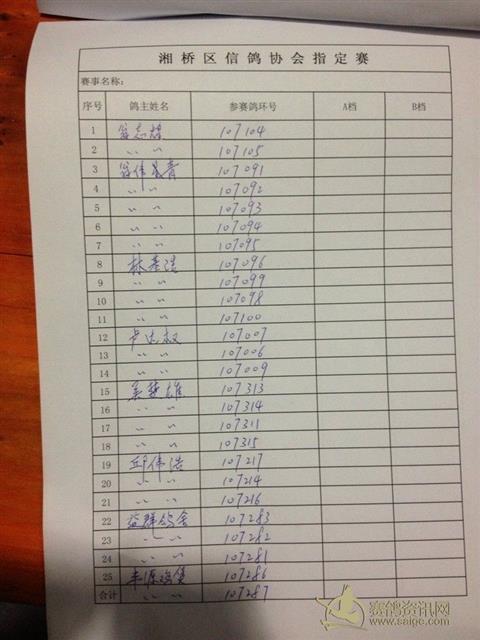 湘桥区信鸽协会指定赛
赛事名称:
序号 鸽主姓名 参赛鸽环号 A档 B档
1 翁志雄 107104
2 〃 〃 107105
3 107091
4 〃 〃 107092
5 〃 〃 107093
6 〃 〃 107094
7 〃 〃 107095
8 林基浩 107096
9 〃 〃 107099
10 〃 〃 107098
11 〃 〃 107100
12 卢达权 107007
13 〃 〃 107006
14 〃 〃 107009
15 吴楚雄 107313
16 〃 〃 107314
17 〃 〃 107311
18 〃 〃 107315
19 邱伟浩 107217
20 〃 〃 107214
21 〃 〃 107216
22 益群鸽舍 107283
23 〃 〃 107282
24 〃 〃 107281
25 107286
合计 〃 〃 107287
赛鸽资讯网
www.saige.com